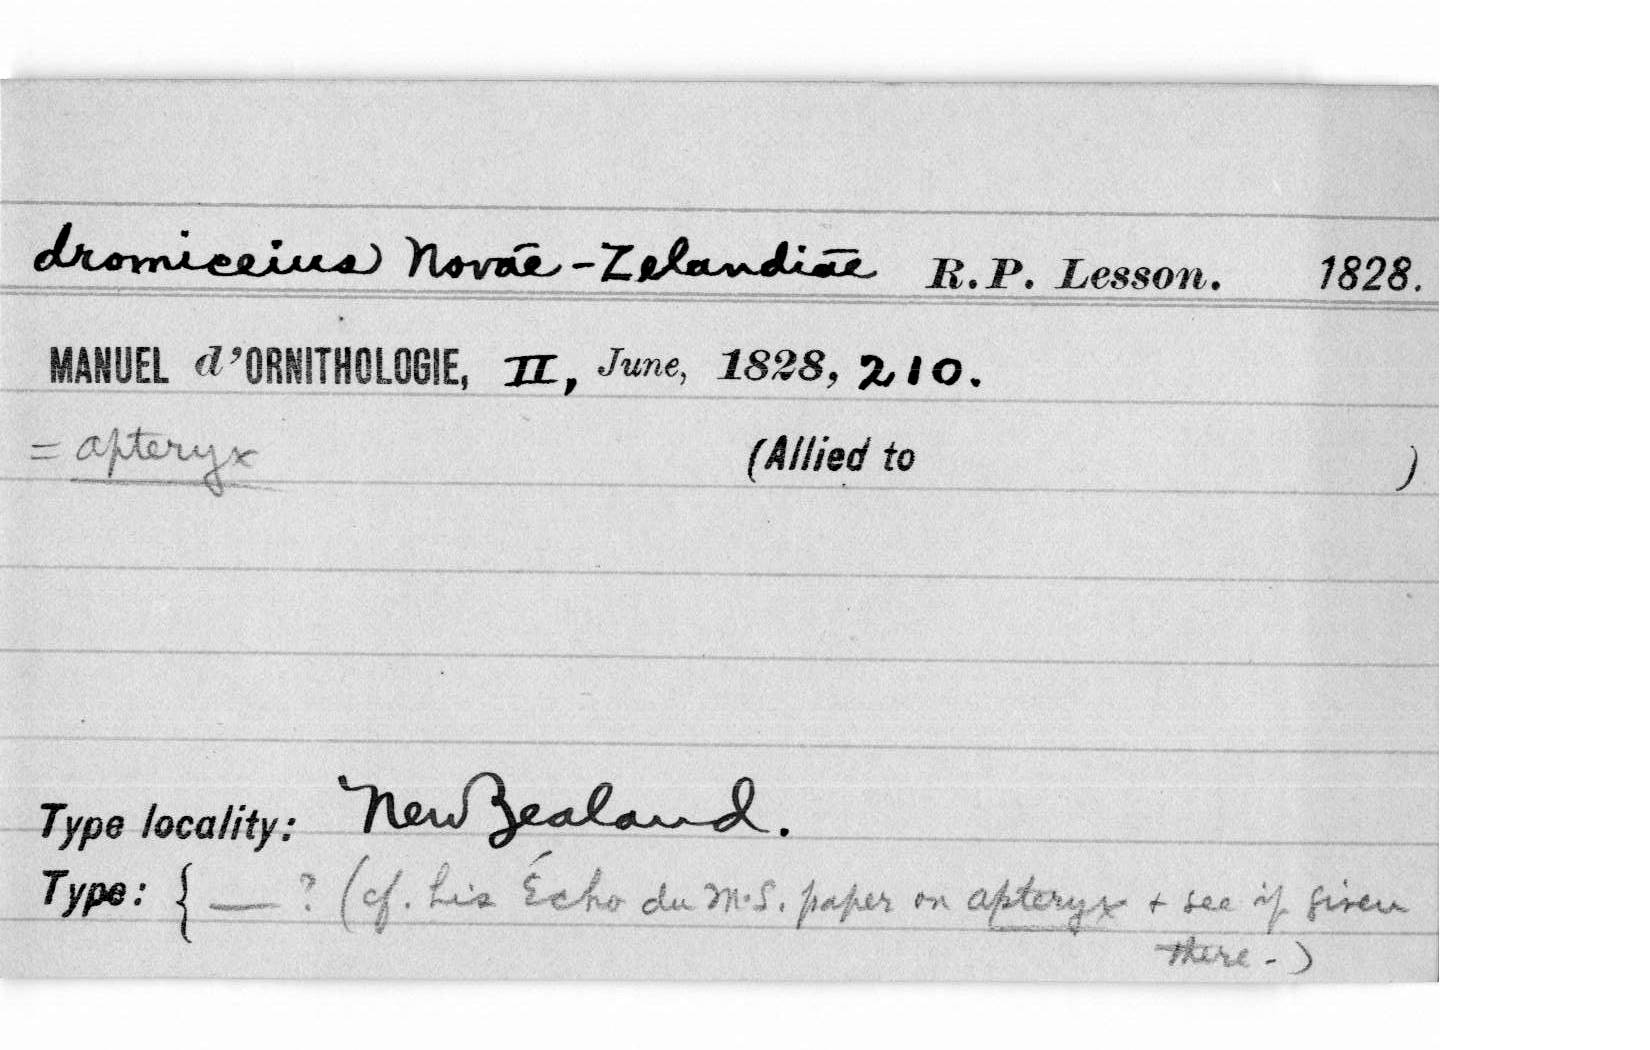 dromiceius Novae-Zelandiae R.P. Lesson. 1828.
MANUEL d'ORNITHOLOGIE, II, June, 1828, 210.
= apteryx (Allied to )
Type locality: New Zealand.
Type: { — ? (cf. his Écho du M.S. paper on apteryx + see if given
there-)